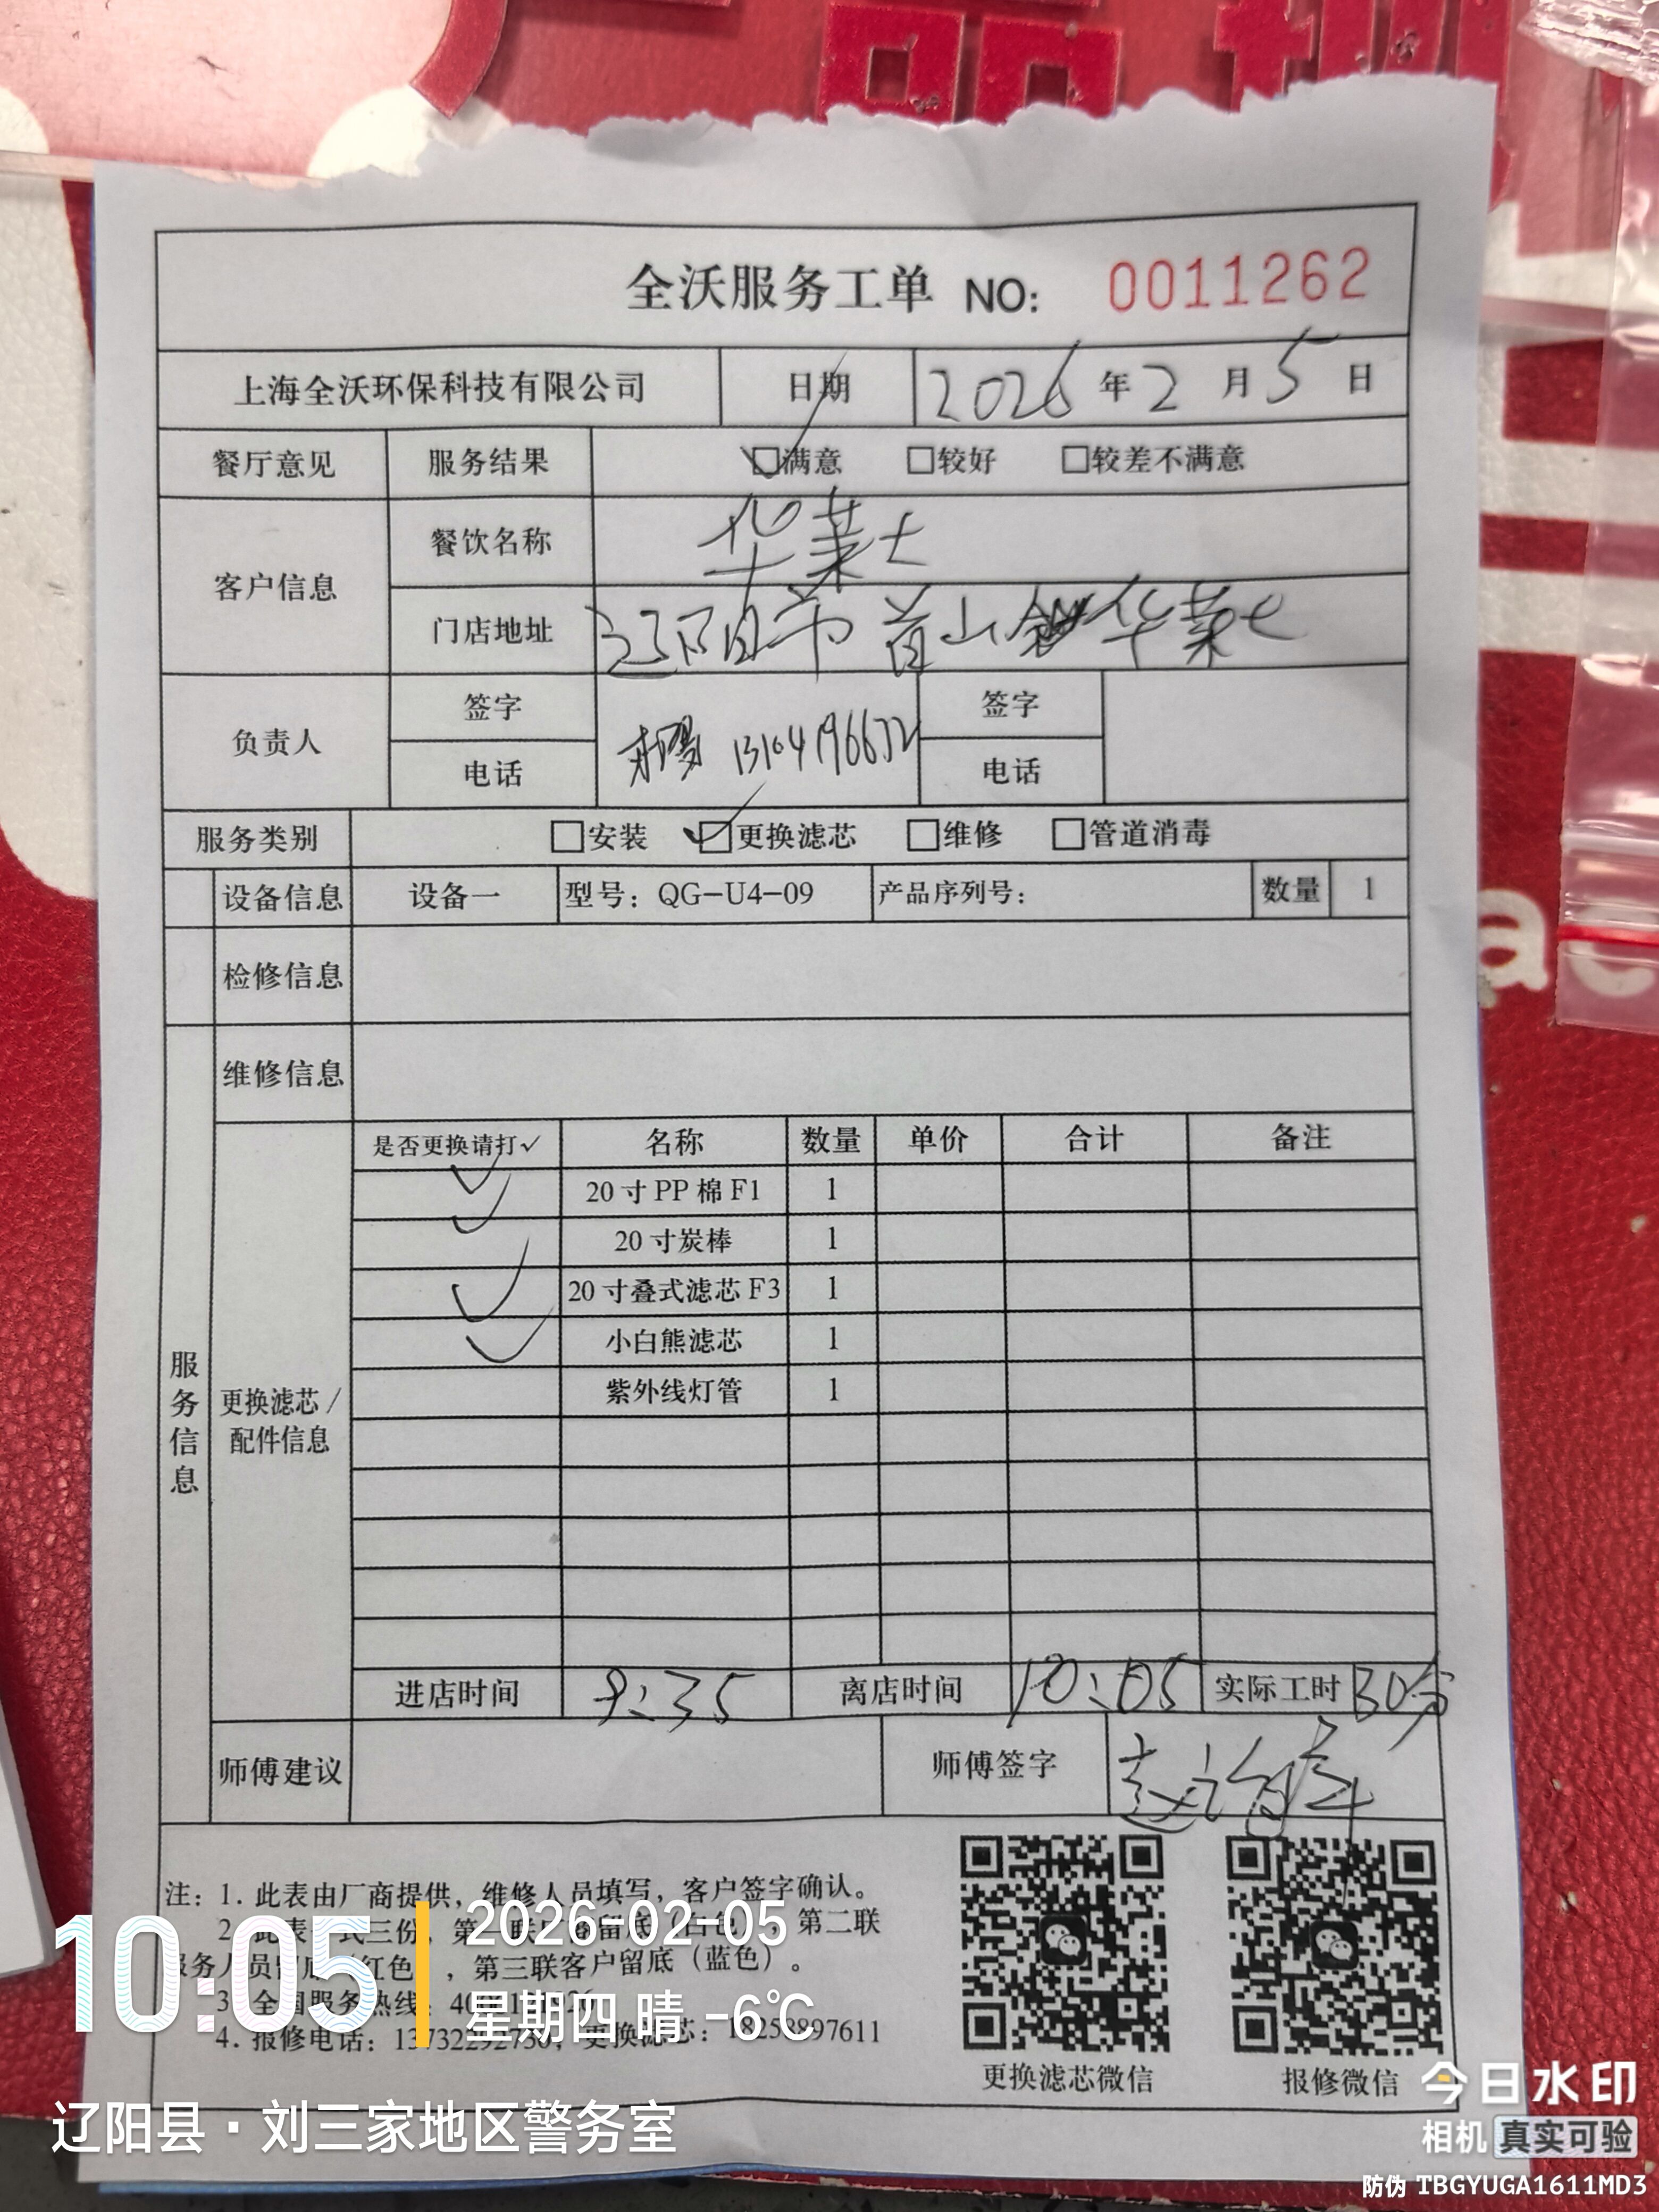 全沃服务工单 NO: 0011262
上海全沃环保科技有限公司 日期 2026年2月5日
餐厅意见 服务结果 ☑满意 □较好 □较差不满意
客户信息 餐饮名称 华莱士
门店地址 辽阳市首山 华莱士
负责人 签字 签字
电话 13104196672 电话
服务类别 □安装 ☑更换滤芯 □维修 □管道消毒
设备信息 设备一 型号：QG-U4-09 产品序列号： 数量 1
检修信息
维修信息
服务信息
更换滤芯/配件信息
是否更换请打✓ 名称 数量 单价 合计 备注
✓ 20寸PP棉F1 1
✓ 20寸炭棒 1
✓ 20寸叠式滤芯F3 1
✓ 小白熊滤芯 1
紫外线灯管 1
进店时间 9:35 离店时间 10:05 实际工时 30分
师傅建议 师傅签字
注：1. 此表由厂商提供，维修人员填写，客户签字确认。
2. 此表一式三份，第一联 留底（白色），第二联
服务人员留底（红色），第三联客户留底（蓝色）。
3. 全国服务热线：
4. 报修电话：13732292730，更换滤芯：18258897611
更换滤芯微信 报修微信
10:05 2026-02-05
星期四 晴 -6℃
辽阳县·刘三家地区警务室
今日水印
相机 真实可验
防伪 TBGYUGA1611MD3